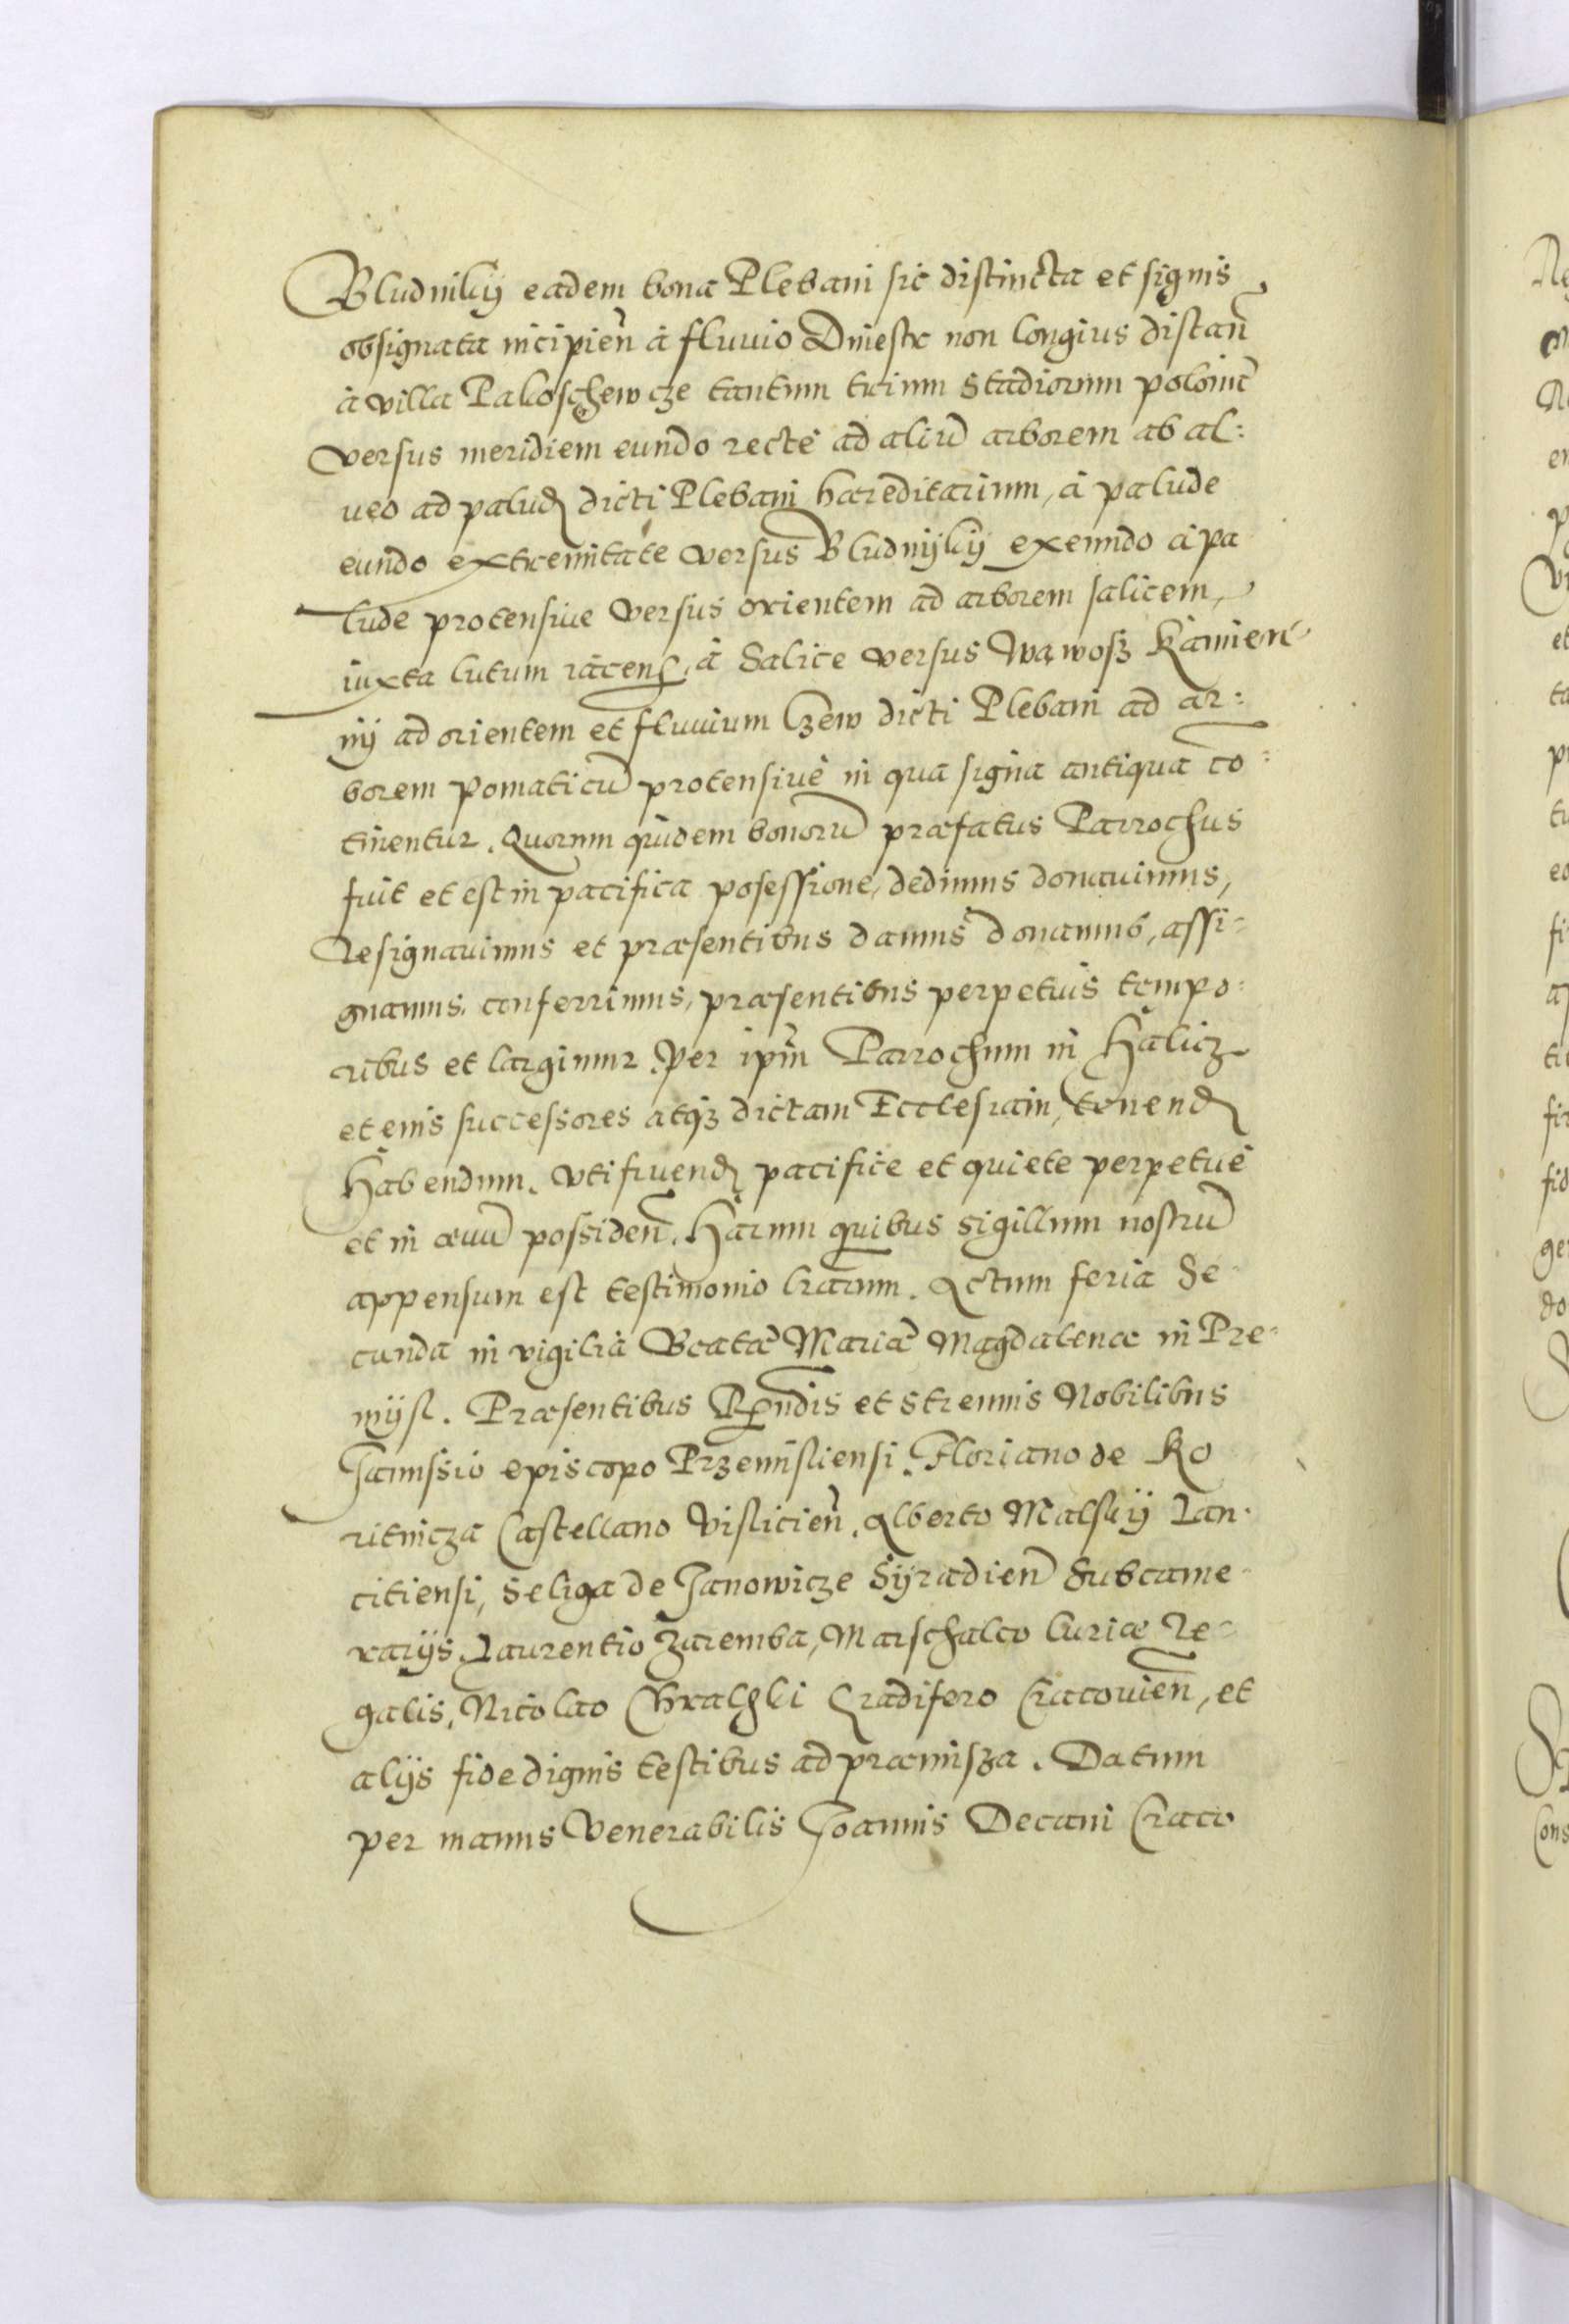 Bludnikij eadem bona Plebani sic distincta et signis
obsignata incipien̄ à fluvio Dniestr non longius distan̄
à villa Pakoschewcze tantum trium stadiorum polonic̄
versus meridiem eundo rectè ad aliud arborem ab al:
ueo ad palud dicti Plebani hæreditarium, à palude
eundo extremitate versus Bludnijkij exeundo à pa
lude protensive versus orientem ad arborem salicem,
iuxta lutum iacens, à Salice versus Wąwosz Kamien
nij ad orientem et fluvium Czew dicti Plebani ad ar:
borem pomaticū protensivè in qua signa antiqua cō:
tinentur. Quorum quidem bonorū præfatus Parrochus
fuit et est in pacifica posessione, dedimus donavimus,
Resignavimus et præsentibus damus donamus, assi-
gnamus, conferrimus, præsentibus perpetuis tempo:
ribus et largimur. Per ipm̄ Parrochum in Halicz
et eius successores atqz dictam Ecclesiam, tenend
Habendum. Vtifruend pacifice et quiete perpetuè
et in ævū possiden̄. Harum quibus sigillum nostrū
appensum est testimonio lrārum. Actum feria Se-
cunda in vigilia Beatæ Mariæ Magdalenæ in Pre-
mijsl. Præsentibus Rṇdis et strenuis Nobilibus
Janussio episcopo Przemisliensi, Floriano de Ko
ritnicza Castellano Vislicien̄, Alberto Malskij Lan-
citiensi, Seliga de Janowicze Sijradien̄ Subcame-
rarijs, Laurentio Zaremba, Marschalco Curiæ Re-
galis, Nicolao Gradifero Cracovien̄, et
alijs fidedignis testibus ad præmisza. Datum
per manus Venerabilis Joannis Decani Craco